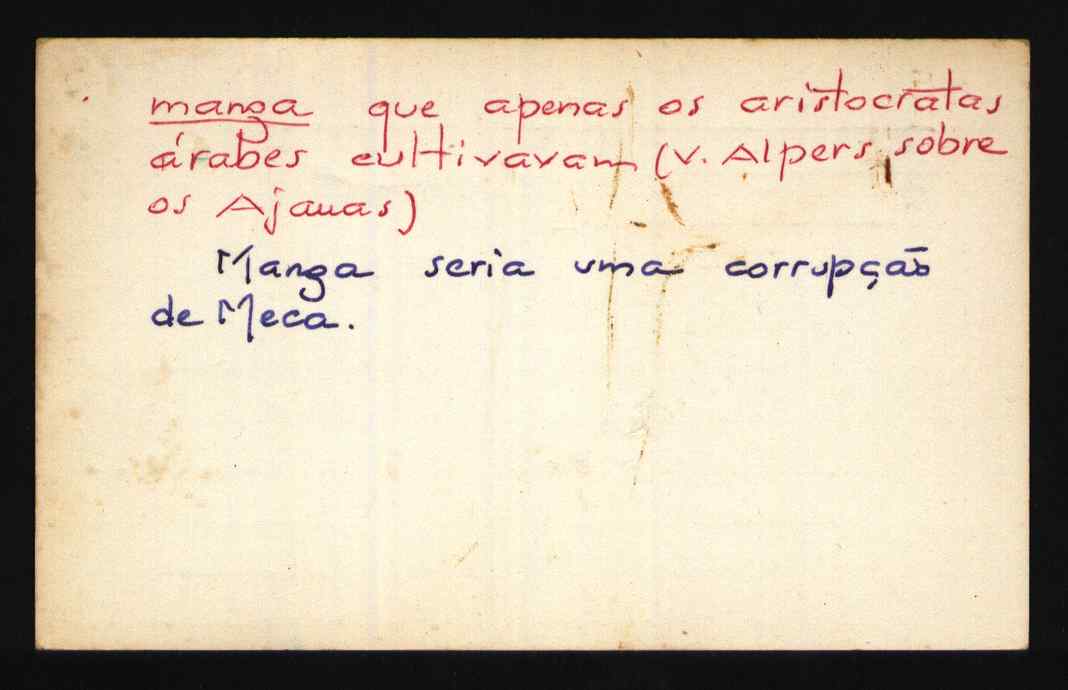 manga que apenas os aristocratas
árabes cultivavam (v. Alpers sobre
os Ajauas)
Manga seria uma corrupção
de Meca.